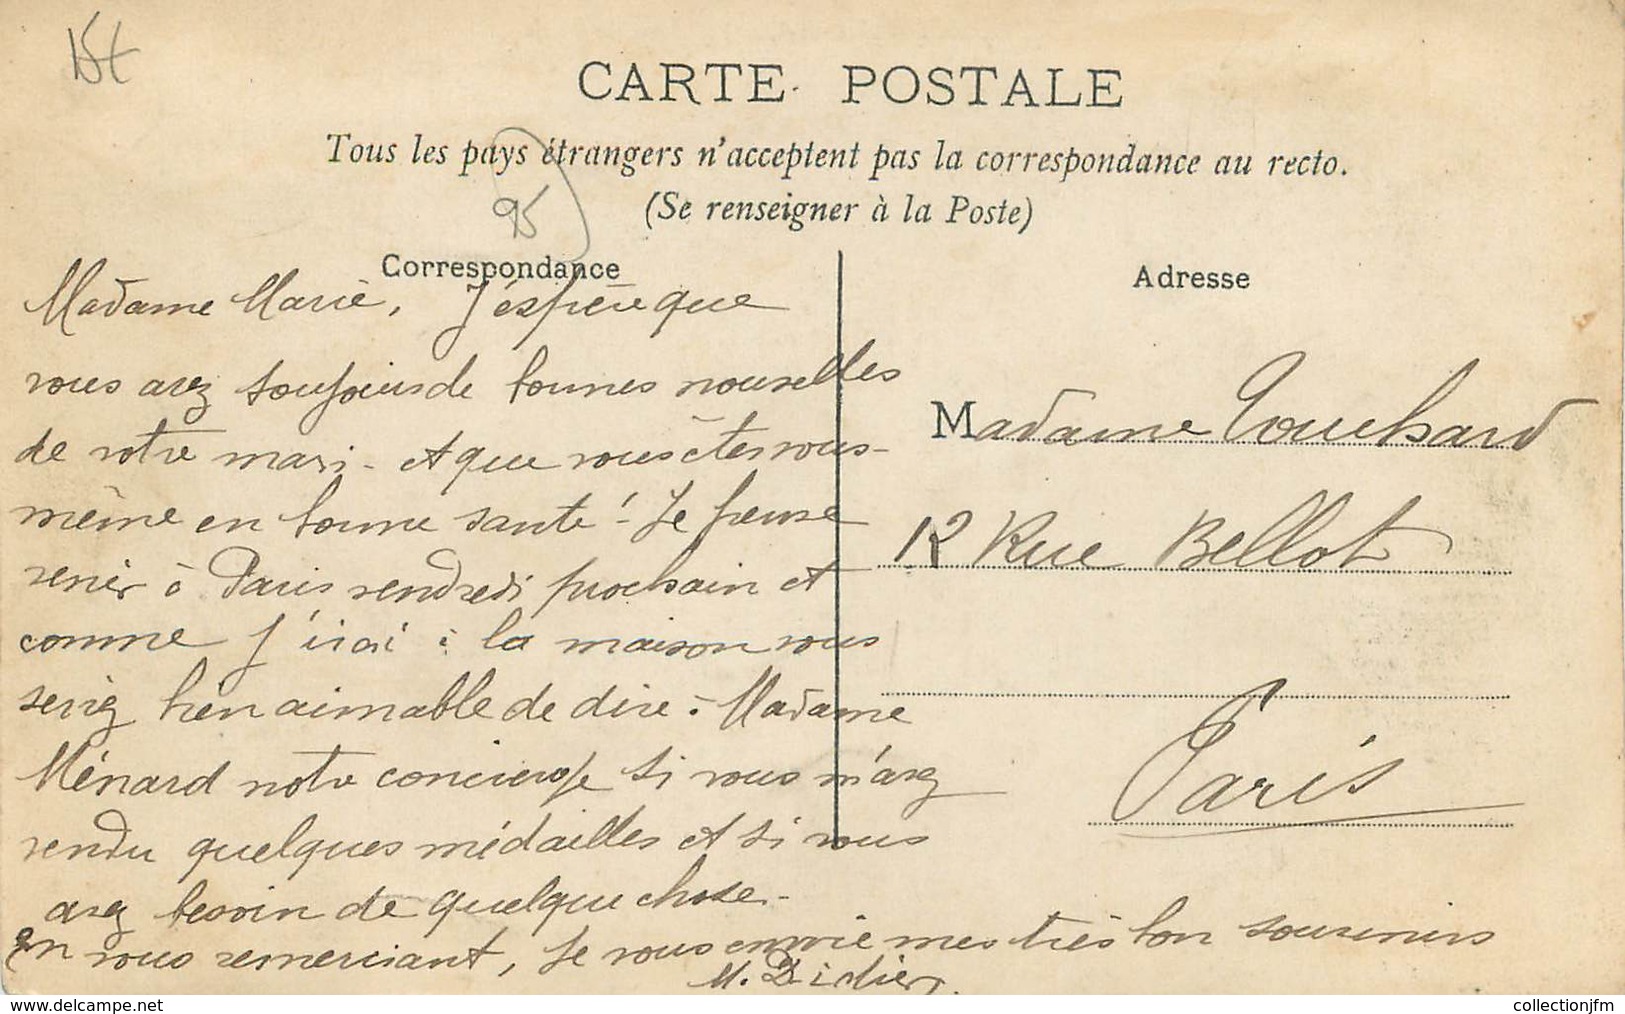 15€
CARTE POSTALE
Tous les pays étrangers n'acceptent pas la correspondance au recto.
(Se renseigner à la Poste)
95
Correspondance
Madame Marie, J'espère que
vous avez toujours de bonnes nouvelles
de votre mari - et que vous êtes vous-
même en bonne santé - Je pense
venir à Paris vendredi prochain et
comme j'irai à la maison vous
seriez bien aimable de dire à Madame
Ménard notre concierge si vous m'avez
vendu quelques médailles et si vous
avez besoin de quelque chose -
en vous remerciant, Je vous envoie mes très bon souvenirs
M. Didier
Adresse
Madame Touchard
12 Rue Bellot
Paris
www.delcampe.net
collectionjfm